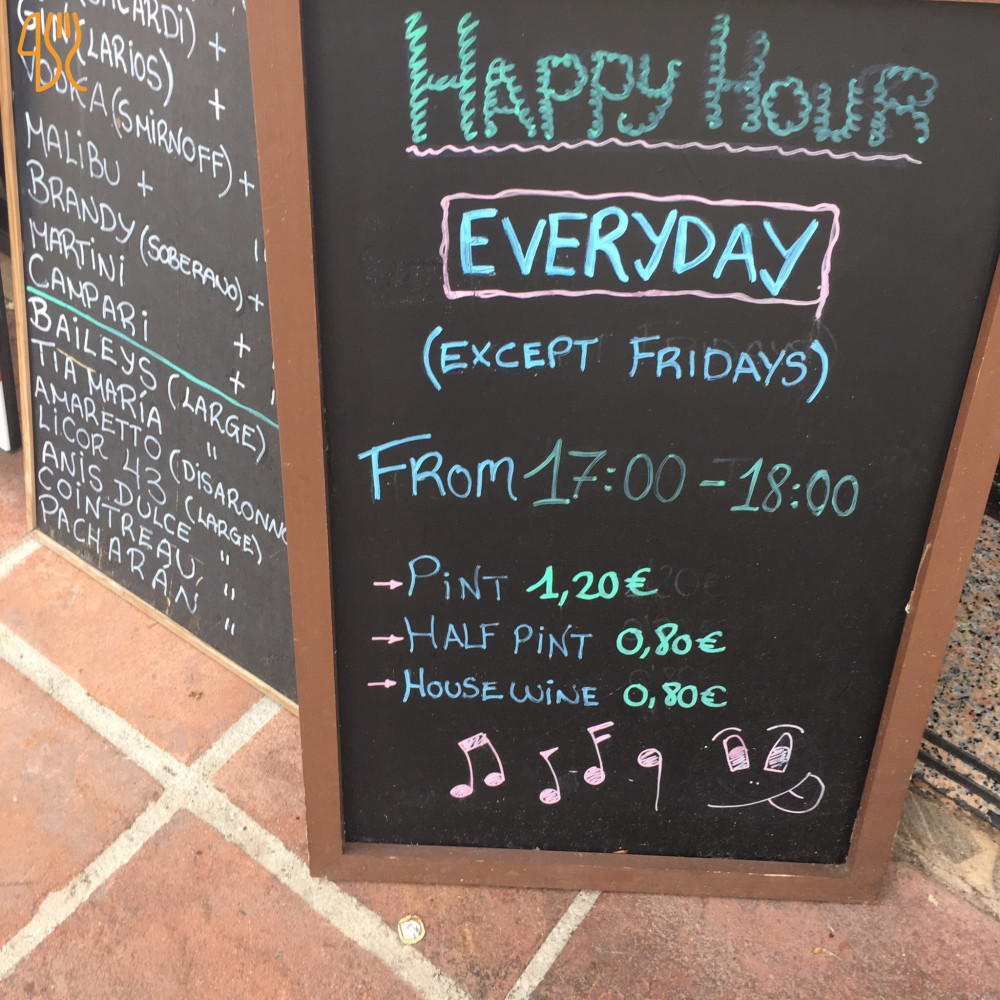 (BACARDI) +
GIN (LARIOS) +
VODKA (SMIRNOFF) +
MALIBU +
BRANDY (SOBERANO) +
MARTINI +
CAMPARI +
BAILEYS (LARGE)
TIA MARÍA "
AMARETTO (DISARONNO
LICOR 43 (LARGE)
ANIS DULCE "
COINTREAU "
PACHARÁN "
HAPPY HOUR
EVERYDAY
(EXCEPT FRIDAYS)
FROM 17:00 - 18:00
→ PINT 1,20€
→ HALF PINT 0,80€
→ HOUSE WINE 0,80€